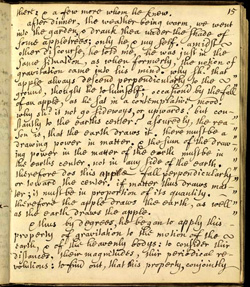 there: & a few more when he
15
after dinner, the weather being warm, we went
into the garden, & drank thea under the shade of
some appletrees; only he, & my self. amidst
other discourse, he told me, he was just in the
same situation, as when formerly, the notion of
gravitation came into his mind. why sh.d that
apple always descend perpendicularly to the
ground, thought he to himself; occasion'd by the fall
of an apple, as he sat in a contemplative mood.
why sh.d it not go sideways, or upwards, but con-
stantly to the earths center? assuredly, the rea-
son is, that the earth draws it. there must be a
drawing power in matter. & the sum of the draw-
ing power in the matter of the earth must be in
the earths center, not in any side of the earth.
therefore dos this apple fall perpendicularly
or toward the center. if matter thus draws mat-
ter; it must be in proportion of its quantity.
therefore the apple draws the earth, as well
as the earth draws the apple.
& thus by degrees, he began to apply this
property of gravitation to the motion of the
earth, & of the heavenly bodys: to consider their
distances, their magnitudes, their periodical re-
volutions: to find out, that this property, conjointly